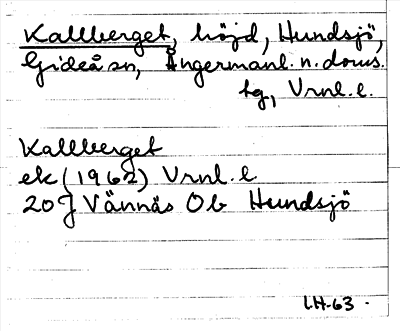 Kallberget, höjd, Hundsjö,
Gideå sn, Ångermanl. n. doms.
tg, Vrnl. l.
Kallberget
ek (1962) Vrnl. l
20J Vännäs Ob Hundsjö
LH-63